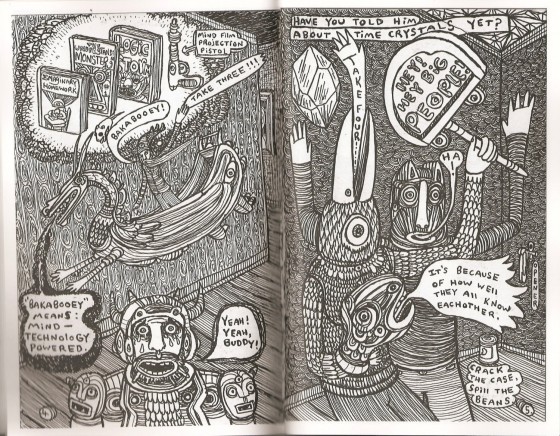 MIND FILM
PROJECTION
PISTOL
MONSTER
LOGIC
IMAGINARY
HOMEWORK
BAKABOOEY!
TAKE THREE!!!
"BAKABOOEY"
MEANS:
MIND-
TECHNOLOGY
POWERED.
YEAH!
YEAH,
BUDDY!
4
HAVE YOU TOLD HIM
ABOUT TIME CRYSTALS YET?
TAKE FOUR!!!
HEY!
HEY BIG
PEOPLE!
HA!
IT'S BECAUSE
OF HOW WELL
THEY ALL KNOW
EACHOTHER.
OPENER
CRACK
THE CASE,
SPILL THE
BEANS.
5